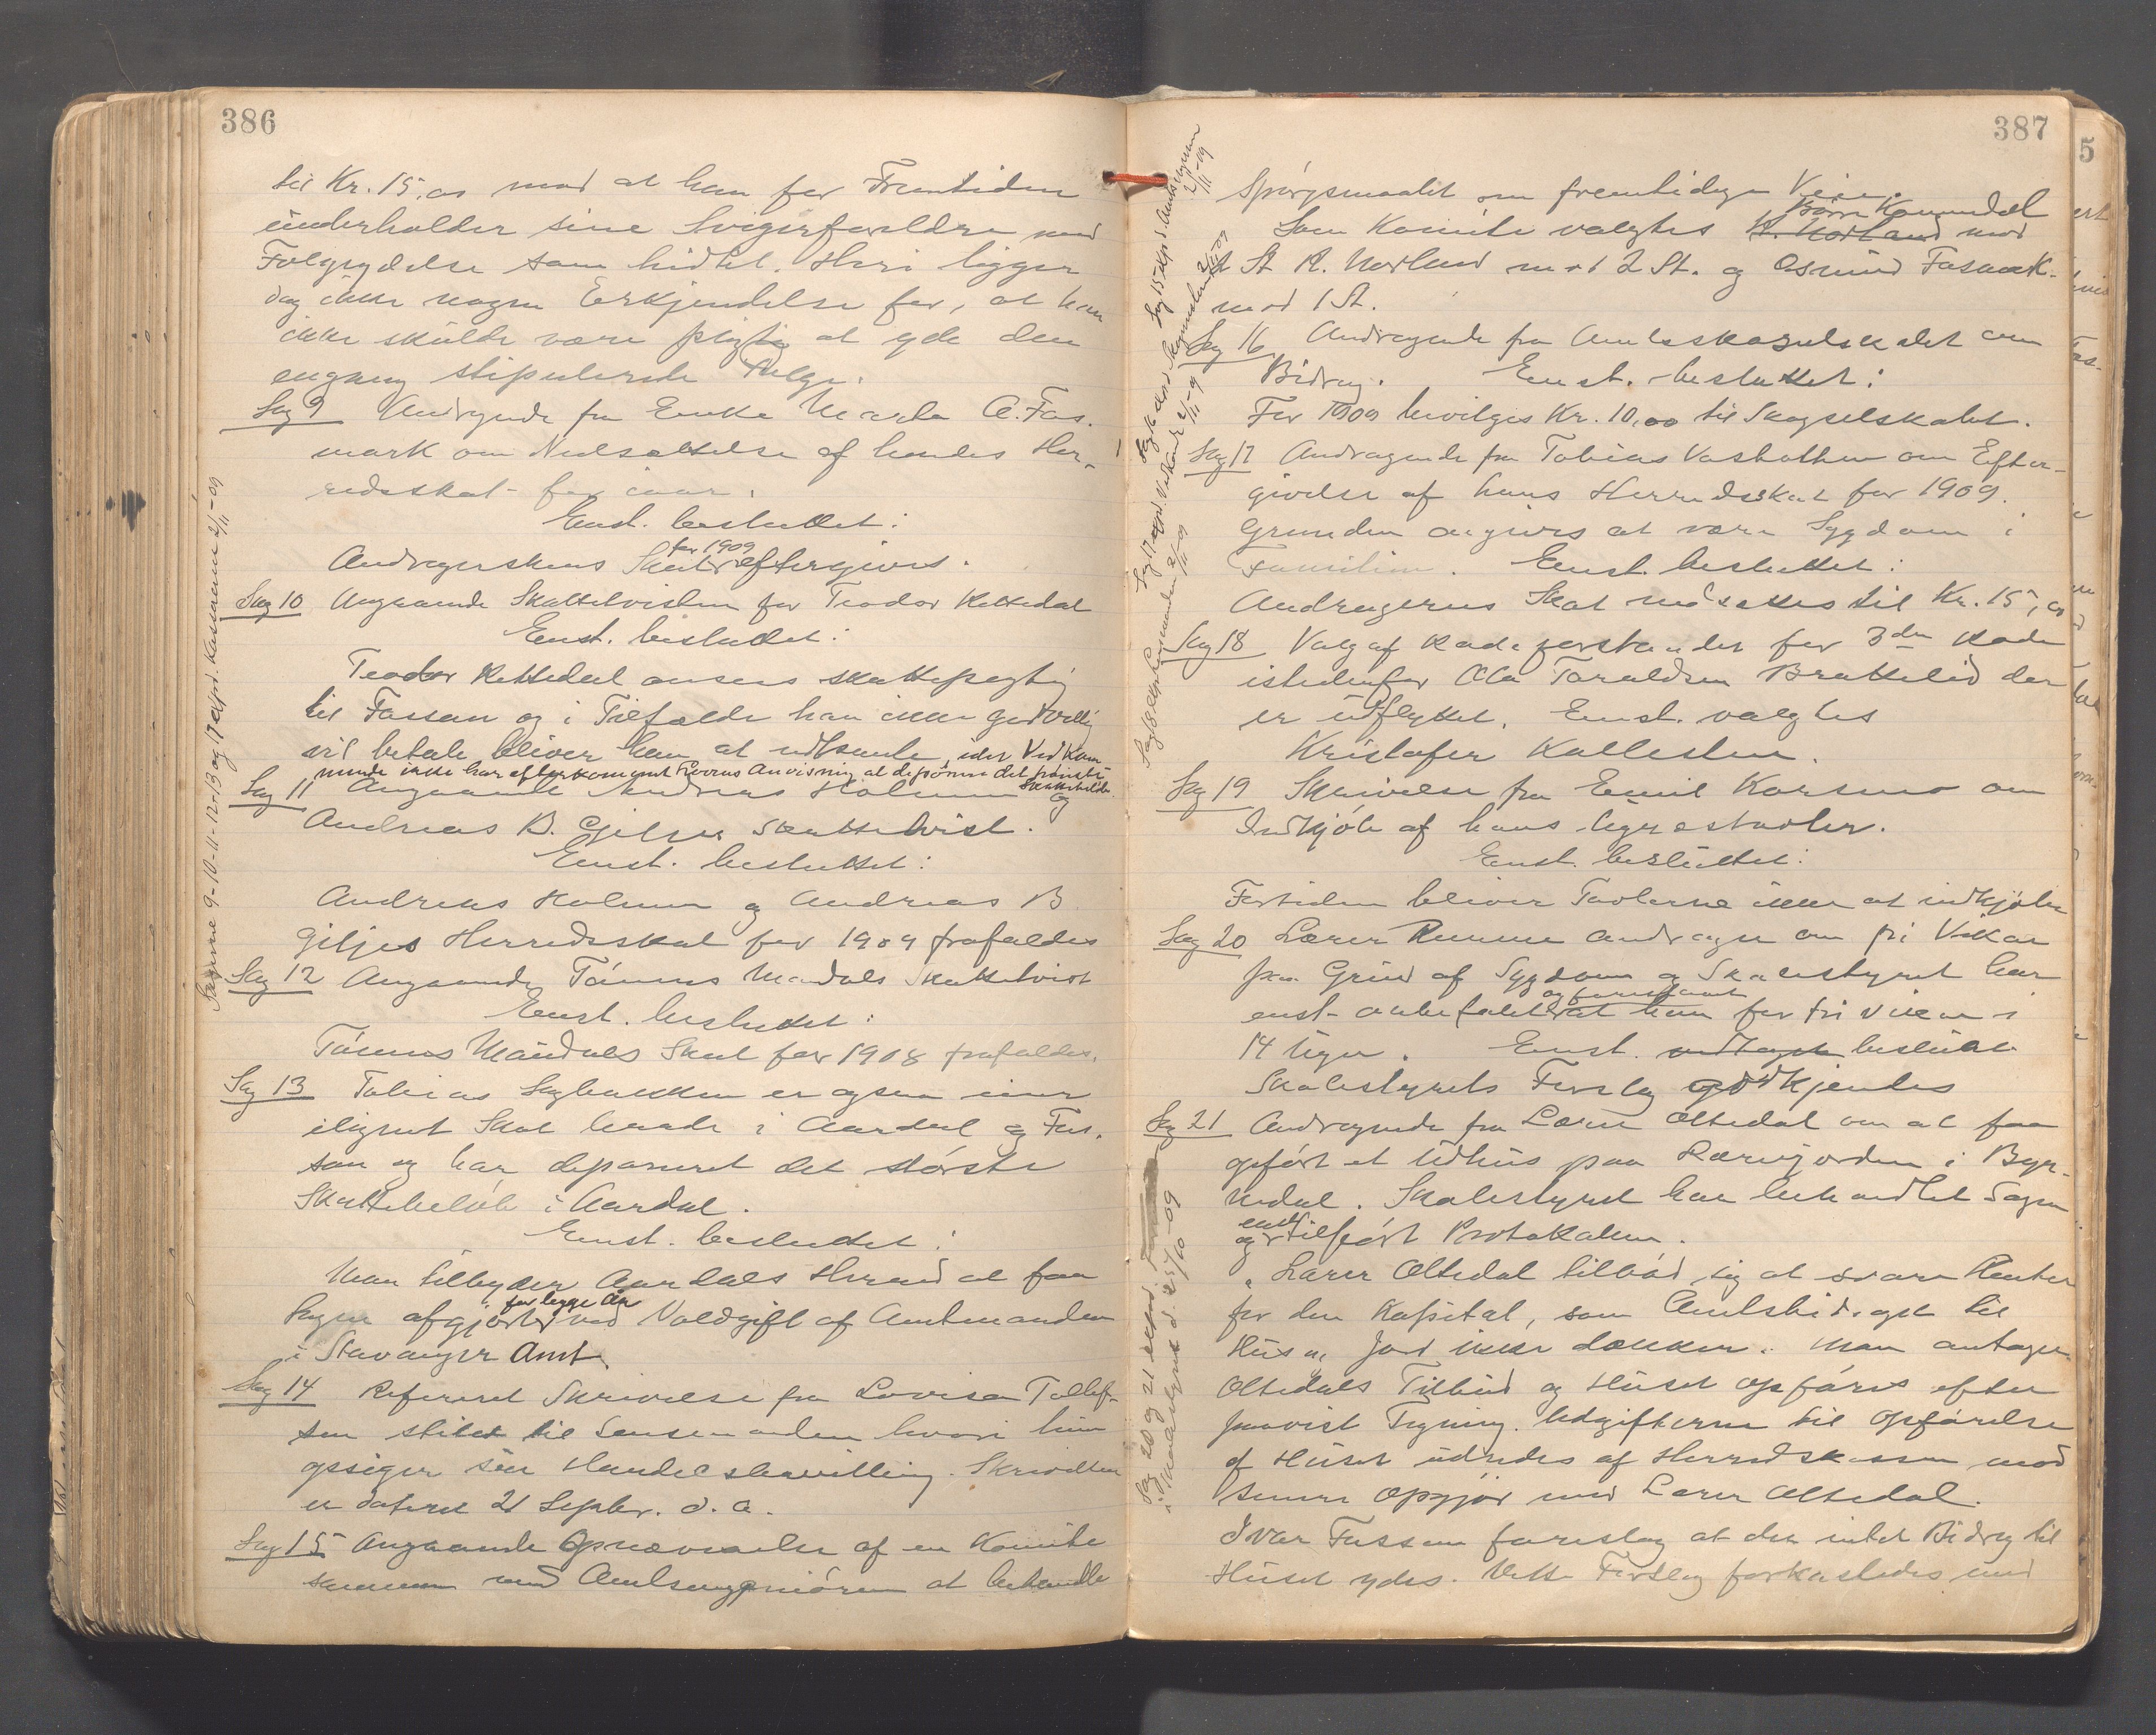 386
til Kr. 15,00 mod at han for Fremtiden
underholder sine Svigerforældre med
Følgeydelse som hidtil. Heri ligger
dog ikke nogen Erkjendelse for, at han
ikke skulde være pligtig at yde den
engang stipulerede Følge.
Sag 9 Andragende fra Enke Marta A. Fos-
mark om Nedsættelse af hendes Her-
redsskat for iaar.
Enst. besluttet:
Andragerskens Skat for 1909 eftergives.
Sag 10 Angaaende Skattetvisten for Teodor Kettedal
Enst. besluttet:
Teodor Kettedal ansees skattepligtig
til Fossan og i Tilfælde han ikke godvillig
vil betale bliver han at udpante, idet Vedkom-
mende ikke har efterkommet Lovens Anvisning at deponere det
Skattebeløb.
Sag 11 Angaaende Andreas Holmen og
Andreas B. Giljes Skattetvist.
Enst. besluttet:
Andreas Holmen og Andreas B
Giljes Herredsskat for 1909 frafaldes
Sag 12 Angaaende Tønnes Maudals Skattetvist
Enst. besluttet:
Tønnes Maudals Skat for 1908 frafaldes.
Sag 13 Tobias Lysbakken er ogsaa
ilignet Skat baade i Aardal og Fos-
san og har deponeret det største
Skattebeløb i Aardal.
Enst. besluttet:
Man tilbyder Aardals Herred at faa
Sagen afgjort for begge Aar ved Voldgift af Amtmanden
i Stavanger Amt.
Sag 14 Refereret Skrivelse fra Lovisa Tollef-
sen stilet til Lensmanden hvori hun
opsiger sin Handelsbevilling. Skrivelsen
er dateret 21 Septbr. d. a.
Sag 15 Angaaende Opnævnelse af en Komite
sammen med Amtsingeniøren at behandle
Sagerne 9-10-11-12-13 og 17 expd. Kassereren 2/11-09
387
Spørgsmaalet om fremtidige Veie.
Som Komite valgtes K. Norland Børre Kommedal med
St. R. Norland med 2 St. og Osmund Fosmark
med 1 St.
Sag 16 Andragende fra Amtsskogselskabet om
Bidrag. Enst. besluttet:
For 1909 bevilges Kr. 10,00 til Skogselskabet.
Sag 17 Andragende fra Tobias Vasbotten om Efter-
givelse af hans Herredsskat for 1909.
Grunden angives at være Sygdom i
Familien. Enst. besluttet:
Andragerens Skat nedsættes til Kr. 15,00
Sag 18 Valg af Rodeforstander for 3die Rode
istedenfor Ola Taraldsen Brattelid der
er udflyttet. Enst. valgtes
Kristofer Kallesten.
Sag 19 Skrivelse fra Emil Korsmo om
Indkjøb af hans Ugræstavler.
Enst. besluttet:
Fortiden bliver Tavlerne ikke at indkjøbe
Sag 20 Lærer Rumme andrager om fri Vikar
paa Grund af Sygdom og Skolestyret har
enst. anbefalet og foreslaaet at han faar fri Vikar i
14 Uger. Enst. vedtaget besluttet
Skolestyrets Forslag godkjendes
Sag 21 Andragende fra Lærer Oltedal om at faa
opført et Udhus paa Lærerjorden i Byr-
kedal. Skolestyret har behandlet Sagen
og enst. tilført Protokollen.
„Lærer Oltedal tilbød sig at svare Renter
for den Kapital, som Amtsbidraget til
Hus og Jord ikke dækker. Man antager
Oltedals Tilbud og Huset opføres efter
paavist Tegning. Udgifterne til Opførelse
af Huset udredes af Herredskassen mod
senere Opgjør med Lærer Oltedal.
Ivar Fossan foreslog at der intet Bidrag til
Huset ydes. Dette Forslag forkastedes med
Sag 15 expd. Amtsingeniøren 2/11-09
Sag 18 expd. Lensmanden 2/11-09
Sag 20 og 21 expd.
i Skolestyret d. 25/10-09